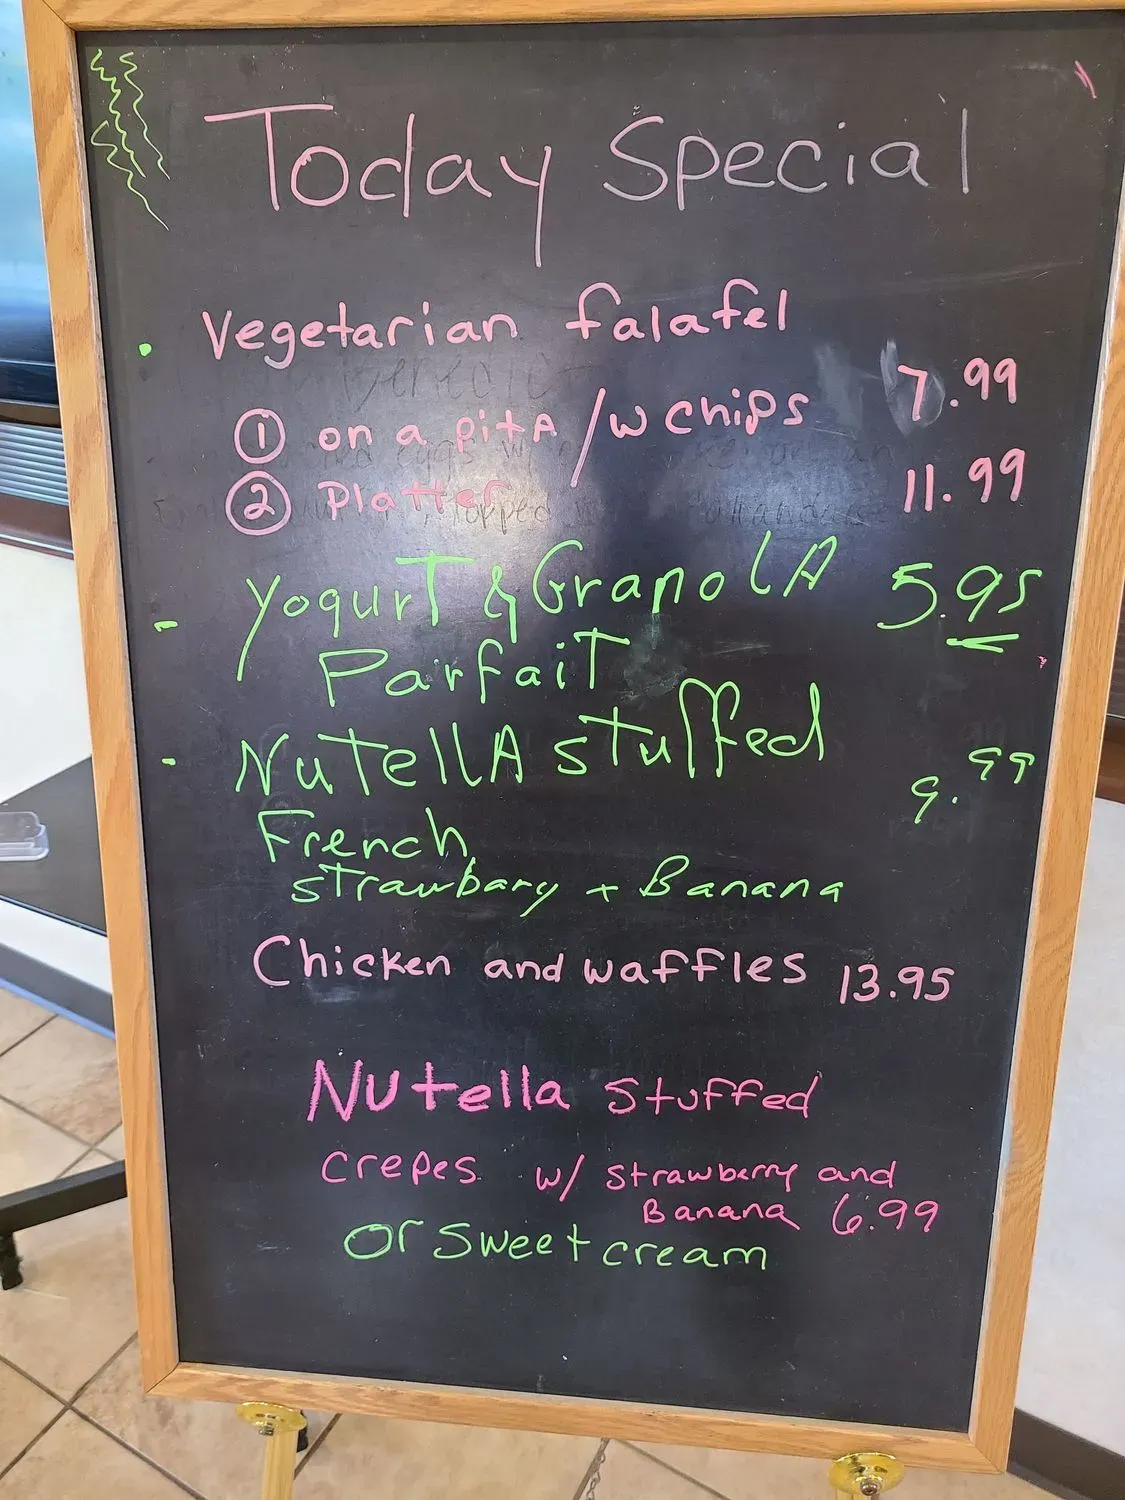 Today Special
Vegetarian falafel
① on a pitA /w chips 7.99
② Platter 11.99
- YogurT & GranolA 5.95
ParfaiT
- NuTellA sTuffed 9.99
French
sTrawbary + Banana
Chicken and waffles 13.95
Nutella stuffed
crepes w/ strawberry and
Banana 6.99
Or sweet cream